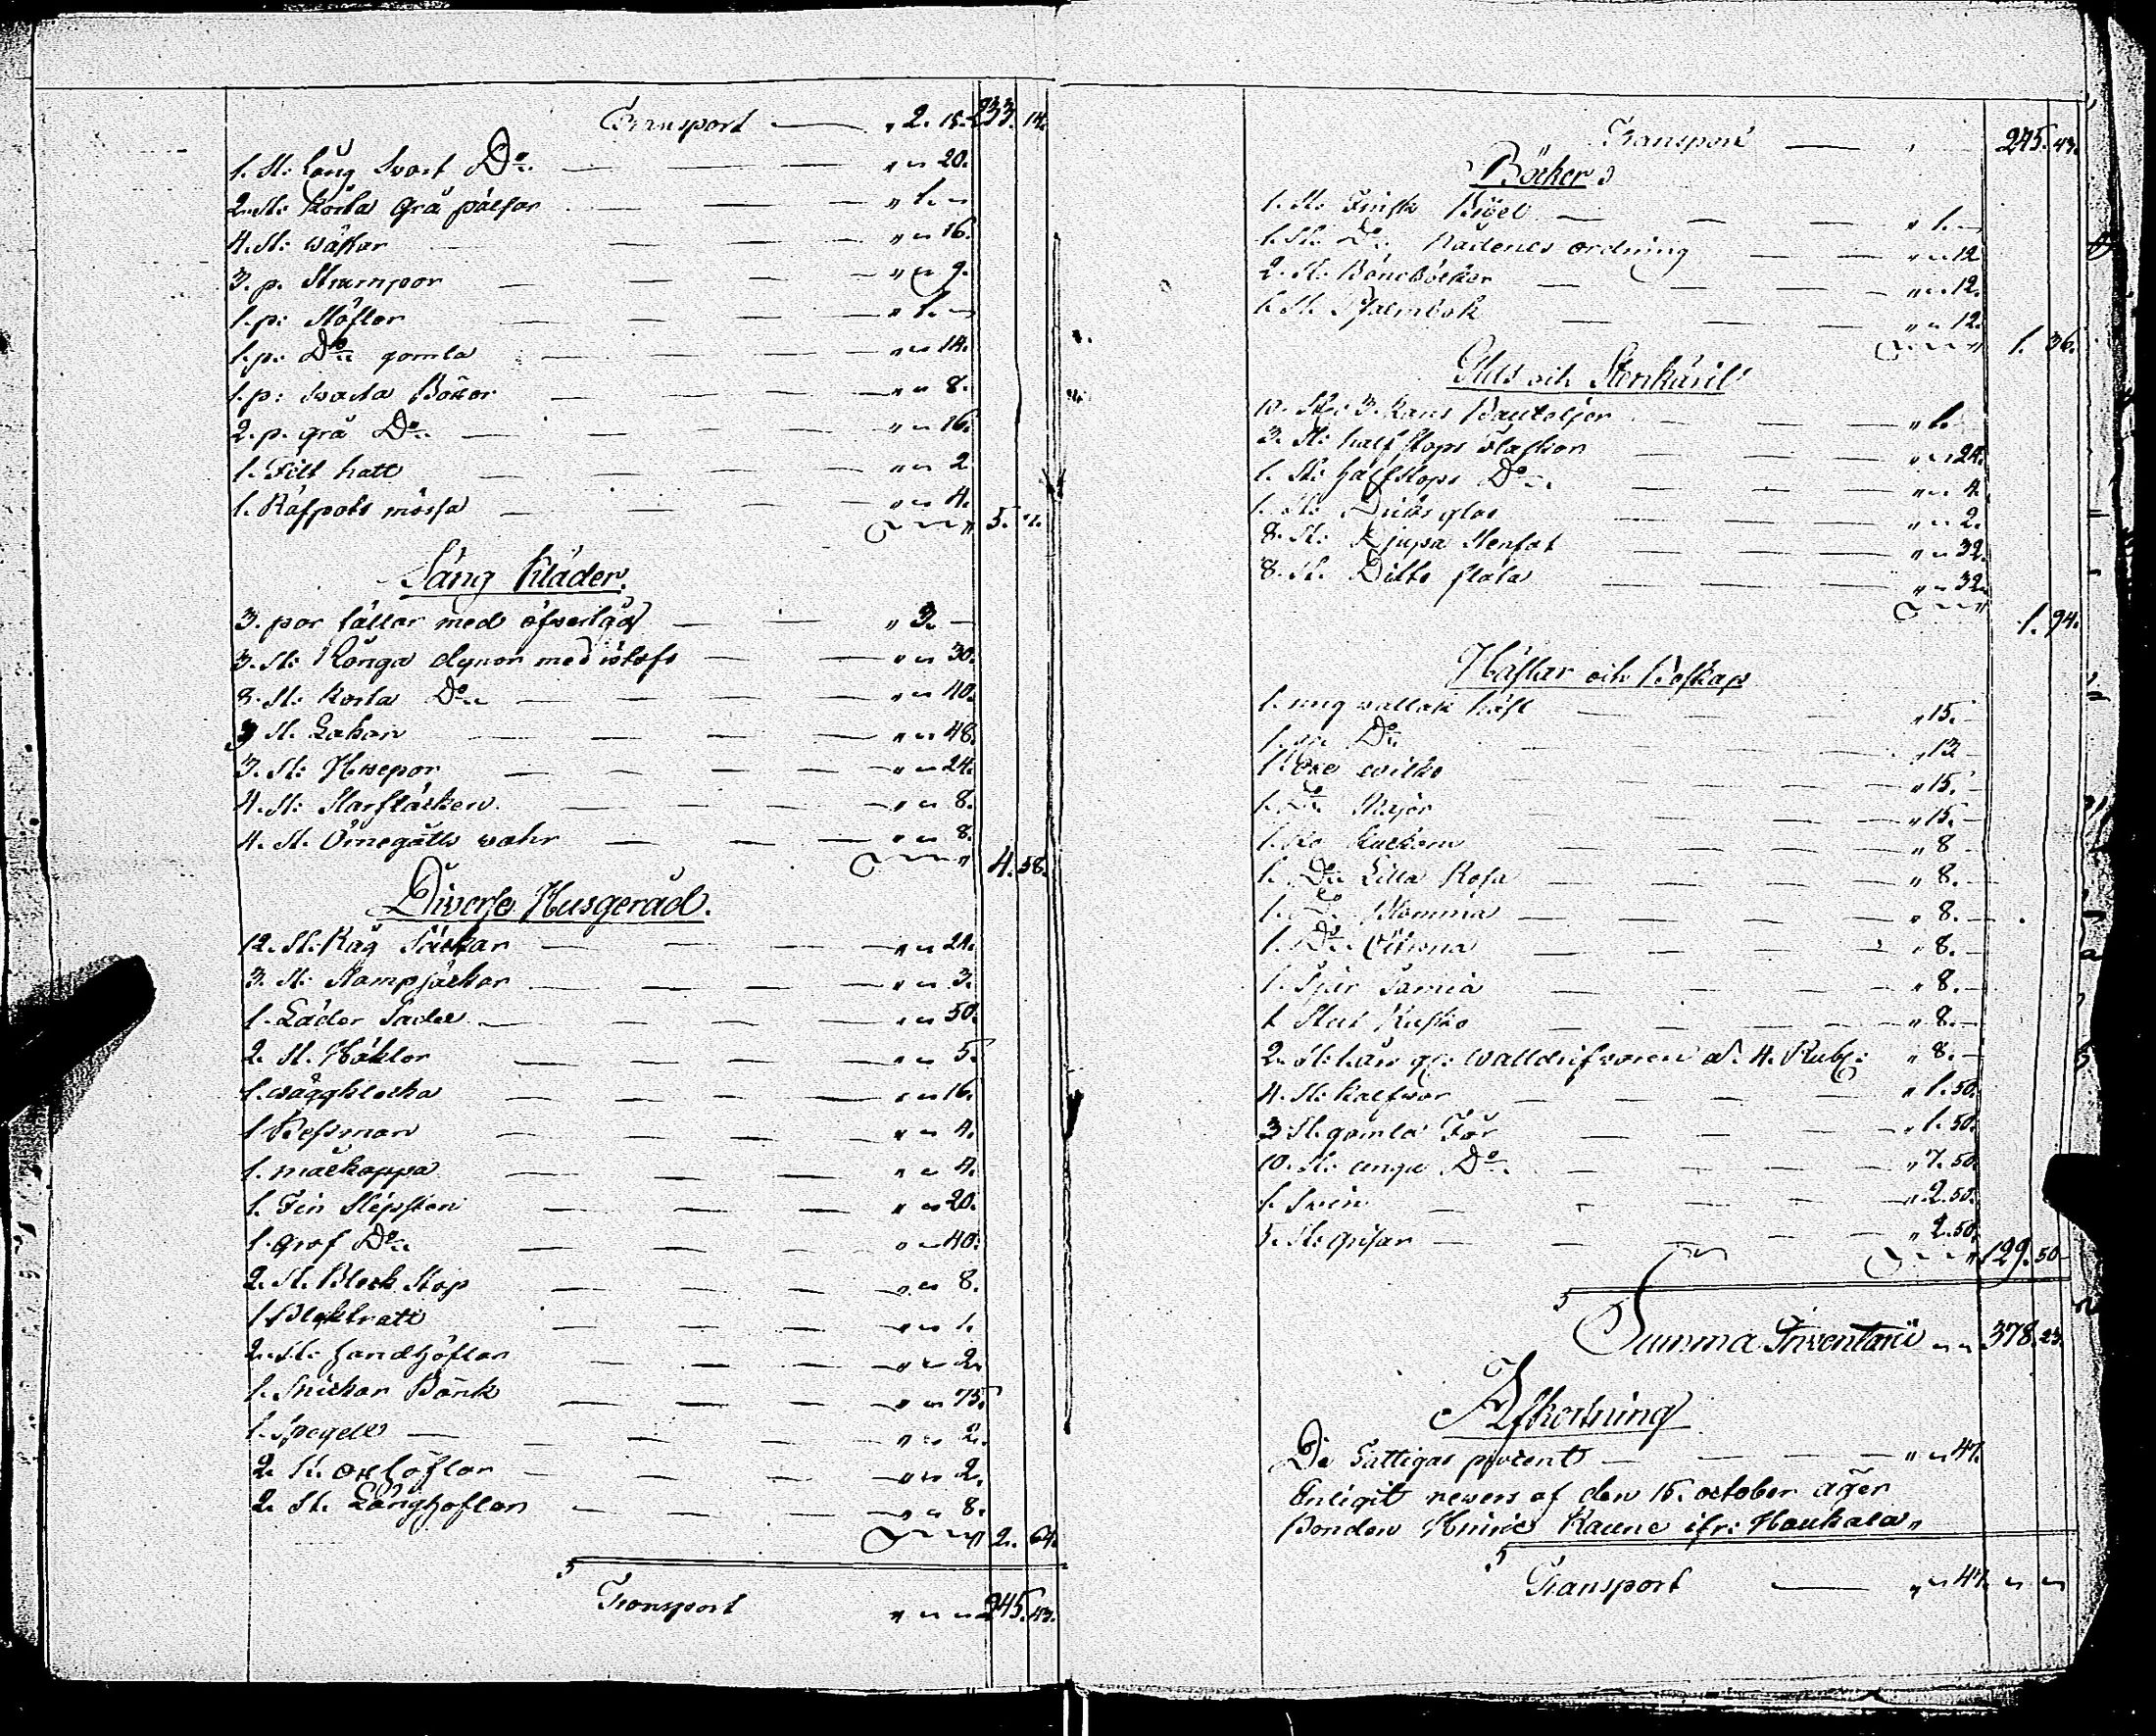 Transport — „ 2. 18. 233. 14.
1. St: lång Svart Do. — „ „ 20.
2. St: korta grå pälsar — „ 1. „
4. St: wästar — „ „ 16.
3. p. Strumpor — „ „ 9.
1. p: Stöflor — „ 1. „
1. p. Do. gamla — „ „ 14.
1. p: svarta Böxor — „ „ 8.
2. p. grå Do. — „ „ 16.
1. Filt hatt — „ „ 2
1. Räfpels mössa — „ „ 4.
5.
Säng Kläder.
3. par fällar med öfwerlag — „ 3. —
3. St: långa dynor med — „ „ 30.
8. St: korta Do. — „ „ 40.
St. Lakan — „ „ 48.
3. St: — „ „ 24.
4. St: — „ „ 8.
4. St. Örnegåtts wahr — „ „ 8.
4. 58.
Diverse Husgeråd.
12. St: Råg Säckar — „ „ 24.
3. St: — „ „ 3.
1. Läder Sadel — „ „ 50.
2. St. Häklor — „ „ 5.
1. wäggklocka — „ „ 16.
1 Besman — „ „ 4.
1. — „ „ 4.
1. Fin Slipsten — „ „ 20.
1. grof Do. — „ „ 40.
2. St. Bleck Stop — „ „ 8.
1 Blektratt — „ „ 1.
2. St: handhöflar — „ „ 2.
1. Snickar Bänk — „ „ 75.
1. Spegell — „ „ 2.
2. St. — „ „ 2.
2. St. Långhöflar — „ „ 8.
2. 64.
Transport „ „ „ 245. 43.
Transport — 245. 43.
Böcker
1. St: Finsk Bibel — „ 1. —
1. St: Do. Nådenes ordning — „ „ 12
2. St: Böneböcker — „ „ 12.
1. St. Psalmbok — „ „ 12.
1. 36.
Glas och Stenkäril
10. St: 3. kans Bauteljer — „ 1.
3. St: half stops flaskor — „ „ 24.
1. St: halfstops Do. — „ „ 4.
1. St: glas — „ „ 2.
8. St: Djupa Stenfat — „ „ 32.
8. St. Ditto flata — „ „ 32.
1. 94.
Hästar och Boskap
1. ung wallak häst — „ 15. —
1. Do. — „ 13 —
1 — „ 15. —
1. Do. — „ 15. —
1. Ko — „ 8 —
1. Do. Lilla Rosa — „ 8. —
1. Do. Blomma — „ 8. —
1. Do. — „ 8. —
1. — „ 8. —
1 — „ 8. —
2. St: Walldrifwaren a: 4. Rub: „ 8. —
4. St: Kalfwar — „ 1. 50.
3 St. gamla Får — „ 1. 50.
10. St: unga Do. — „ 7. 50
1. Svin — „ 2. 50.
5. St: grisar — „ 2. 50.
129. 50
Summa Inventarii „ „ 378. 23.
Afkortning
De Fattigas procent — „ „ 47.
Enligit rewers af den 15. october äger
Bonden Kaune ifr: Haukala „
Transport — „ „ 47. „ „